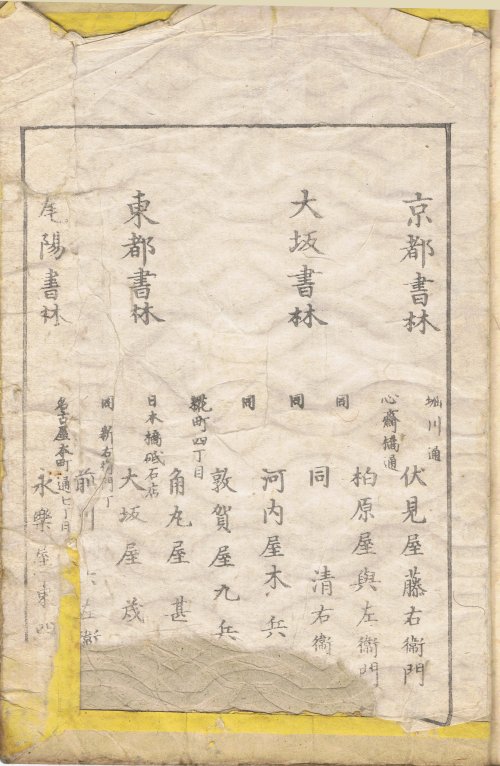 京都書林
堀川通
伏見屋藤右衛門
大坂書林
心齋橋通
柏原屋與左衛門
同
同 清右衛
同
河内屋木兵
同
敦賀屋九兵
東都書林
糀町四丁目
角丸屋甚
日本橋砥石店
大坂屋茂
同 新右衛門丁
前川六左衛
尾陽書林
名古屋本町通七丁目
永樂屋東四